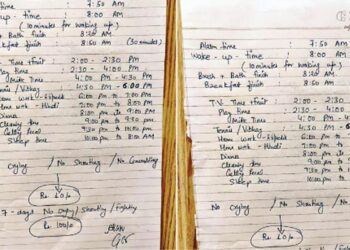 time : 7:50 AM
up - time : 8:00 AM
(10 minutes for waking up)
+ Bath finish 8:20 AM
finish 8:50 AM (30 minutes)
Time / fruit : 2:00 - 2:30 PM
Play time : 2:30 - 4:00 PM
Milk Time 4:00 PM - 4:30 PM
Tennis / 4:30 PM - 6:00 PM
work - 6:00 PM to 7:00 PM
work - Hindi 7:00 PM to 8:00 PM
Dinner 8:00 PM to 9:00 PM
Cleaning time 9:00 PM to 9:30 PM
9:30 PM to 10:00 PM
Sleep time 10:00 PM
Crying / No Shouting / No Grumbling
Rs. 10/-
7 - days No crying / Shouting / Fighting
Rs. 100/-
Alarm time : 7:50 AM
Wake - up - time : 8:00 AM
(10 minutes for waking up)
Brush + Bath finish 8:20 AM
Breakfast finish 8:50 AM
T.V. Time / fruit : 2:00 - 2:30
Play time : 2:30 - 4:00
Milk Time 4:00 PM
Tennis / 4:30 PM
Home work - 6:00 PM
Home work - Hindi 7:00 PM
Dinner 8:00 PM
Cleaning time 9:00 PM
9:30 PM
Sleep time 10:00
No Crying / No Shouting / No
Rs. 10/-